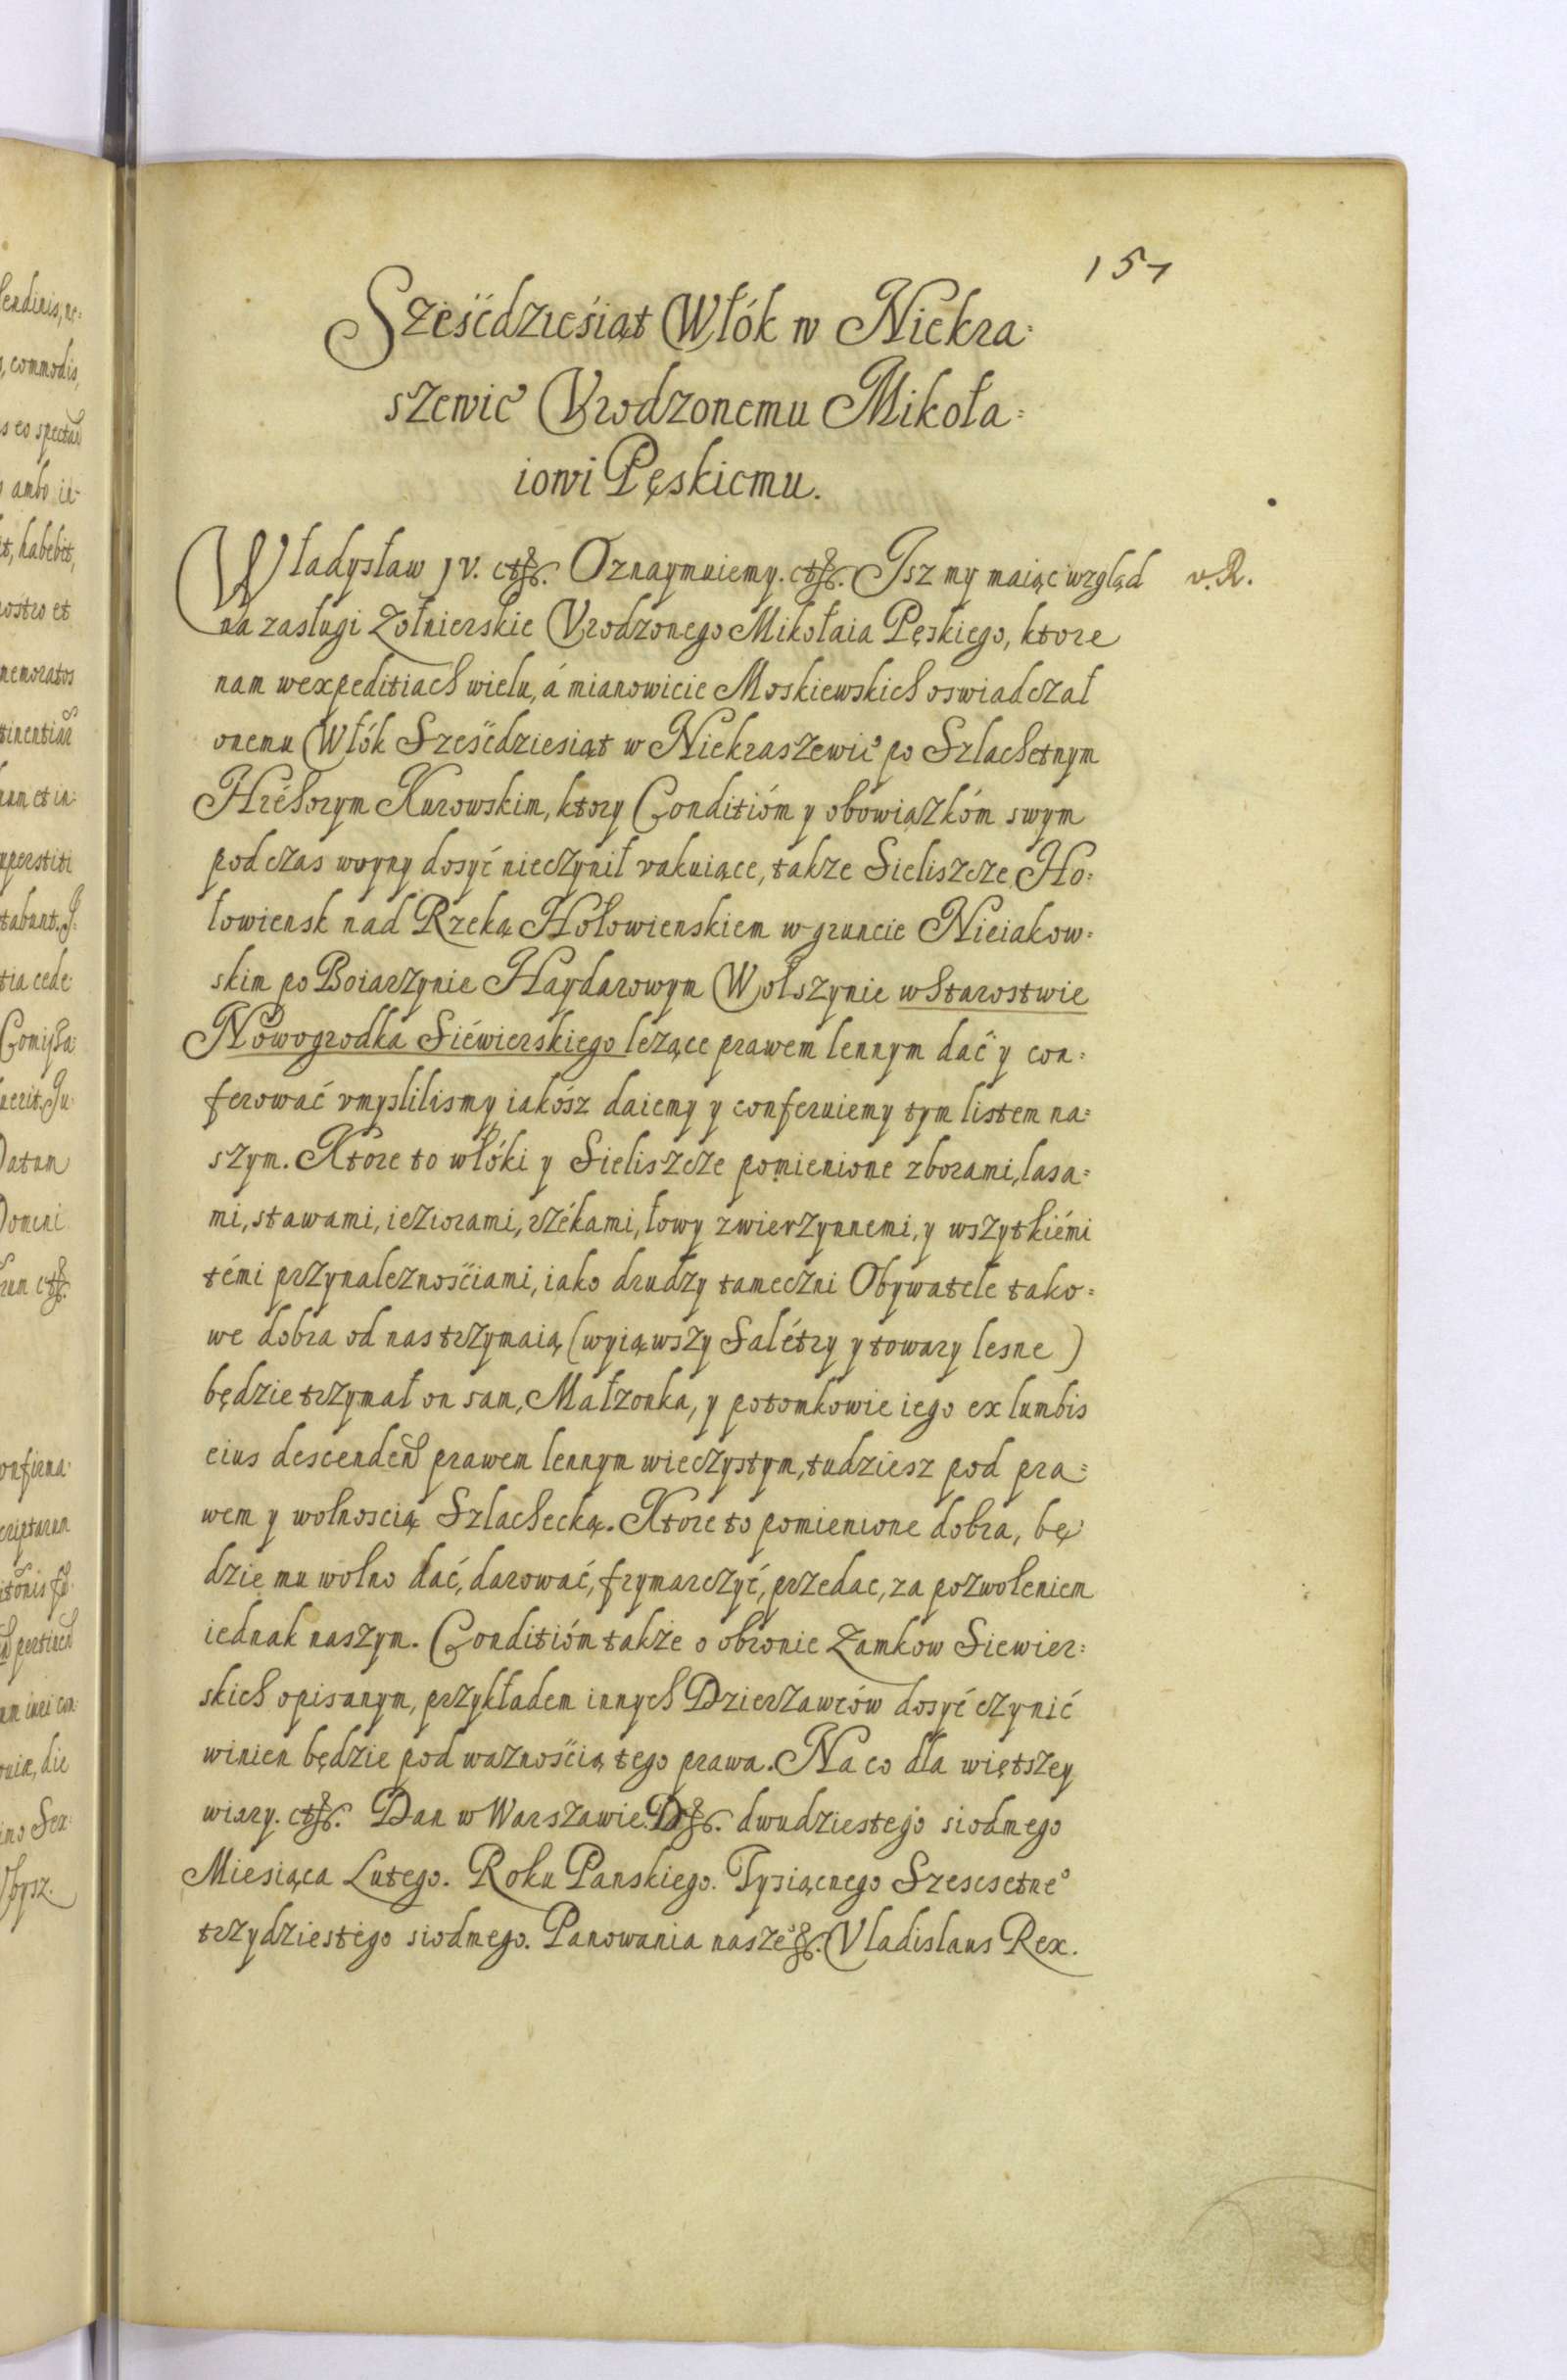 151
Sześćdzieśiąt Włók w Niekra=
szewic Vrodzonemu Mikoła=
iowi Pęskiemu.
Władysław IV. etc. Oznaymuiemy. etc. Isz my maiąc wzgląd v. R.
na zasługi Zołnierskie Vrodzonego Mikołaia Pęskiego, ktore
nam wexpeditiach wielu, á mianowicie Moskiewskich oswiadczał
onemu Włók Sześćdziesiąt w Niekraszewic po Szlachetnym
Hrehorym Kurowskim, ktory Conditióm y obowiązkóm swym
podczas woyny dosyć nieczynił vakuiące, takze Sieliszcze Ho=
łowiensk nad Rzeką Hołowienskiem w gruncie Nieiakow=
skim po Boiarzynie Haydarowym Wołszynie w Starostwie
Nowogrodka Siéwierskiego lezące prawem lennym dać y con=
ferować vmyslilismy iakósz daiemy y conferuiemy tym listem na=
szym. Ktore to włóki y Sieliszcze pomienione zborami, lasa=
mi, stawami, ieziorami, rzékami, łowy zwierzynnemi, y wszytkiémi
témi przynaleznośćiami, iako drudzy tameczni Obywatele tako=
we dobra od nas trzymaią (wyiąwszy Salétry y towary lesne)
będzie trzymał on sam, Małzonka, y potomkowie iego ex lumbis
eius descenden prawem lennym wieczystym, tudziesz pod pra=
wem y wolnoscią Szlachecką. Ktore to pomienione dobra, bę=
dzie mu wolno dać, darować, frymarczyć, przedac, za pozwoleniem
iednak naszym. Conditióm także o obronie Zamkow Siewier=
skich opisanym, przykładem innych Dzierzawców dosyć czynić
winien będzie pod waznośćią tego prawa. Na co dla większey
wiary. etc. Dan w Warszawie D. dwudziestego siodmego
Miesiąca Lutego. Roku Panskiego. Tysiącnego Szescsetneo
trzydziestego siodmego. Panowania naszeo etc. Vladislaus Rex.